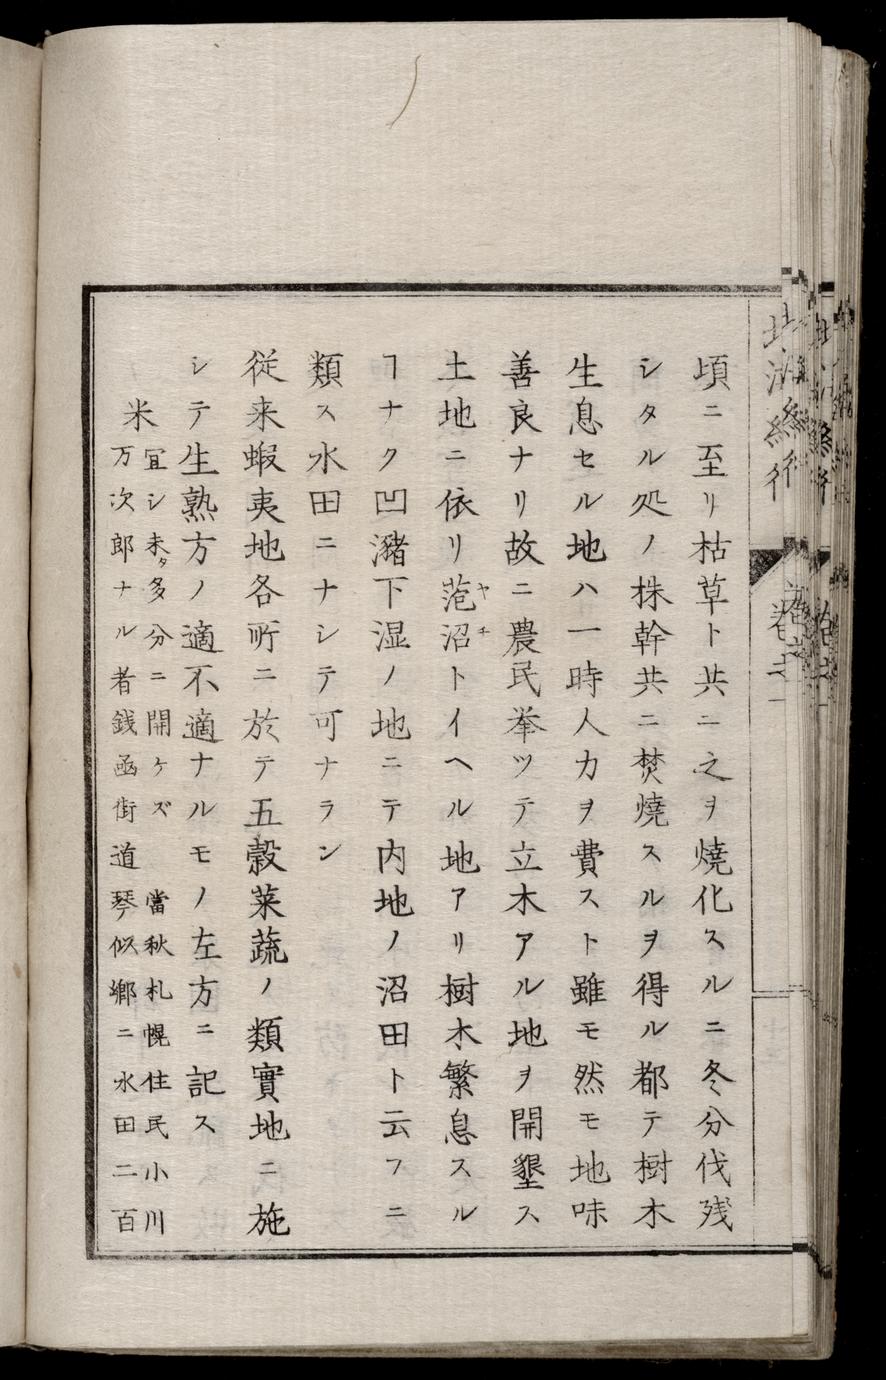 頃ニ至リ枯草ト共ニ之ヲ焼化スルニ冬分伐残
シタル処ノ株幹共ニ焚焼スルヲ得ル都テ樹木
生息セル地ハ一時人力ヲ費スト雖モ然モ地味
善良ナリ故ニ農民挙ツテ立木アル地ヲ開墾ス
土地ニ依リ萢沼トイヘル地アリ樹木繁息スル
ヤチ
ヿナク凹瀦下湿ノ地ニテ内地ノ沼田ト云フニ
類ス水田ニナシテ可ナラン
従来蝦夷地各所ニ於テ五穀菜蔬ノ類實地ニ施
シテ生熟方ノ適不適ナルモノ左方ニ記ス
米
宜シ未タ多分ニ開ケズ 當秋札幌住民小川
万次郎ナル者銭函街道琴似郷ニ水田二百